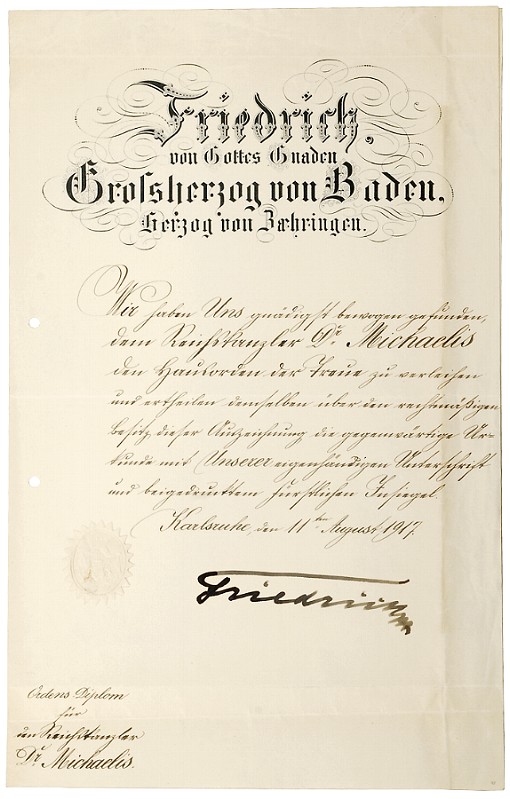 Friedrich,
von Gottes Gnaden
Grossherzog von Baden,
Herzog von Zæhringen.
Wir haben Uns gnädigst bewogen gefunden,
dem Reichskanzler Dr. Michaelis
den Hausorden der Treue zu verleihen
und ertheilen demselben über den rechtmäßigen
Besitz dieser Auszeichnung die gegenwärtige Ur-
kunde mit Unserer eigenhändigen Unterschrift
und beigedrucktem fürstlichen Insiegel.
Karlsruhe, den 11ten August 1917.
Friedrich
Ordens-Diplom
für
den Reichskanzler
Dr. Michaelis.